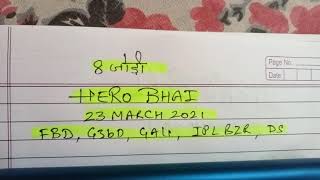 8 जोड़ी
HERO BHAI
23 MARCH 2021
FBD, G3bD, GALi, IPL BZR, DS
Page No.
Date